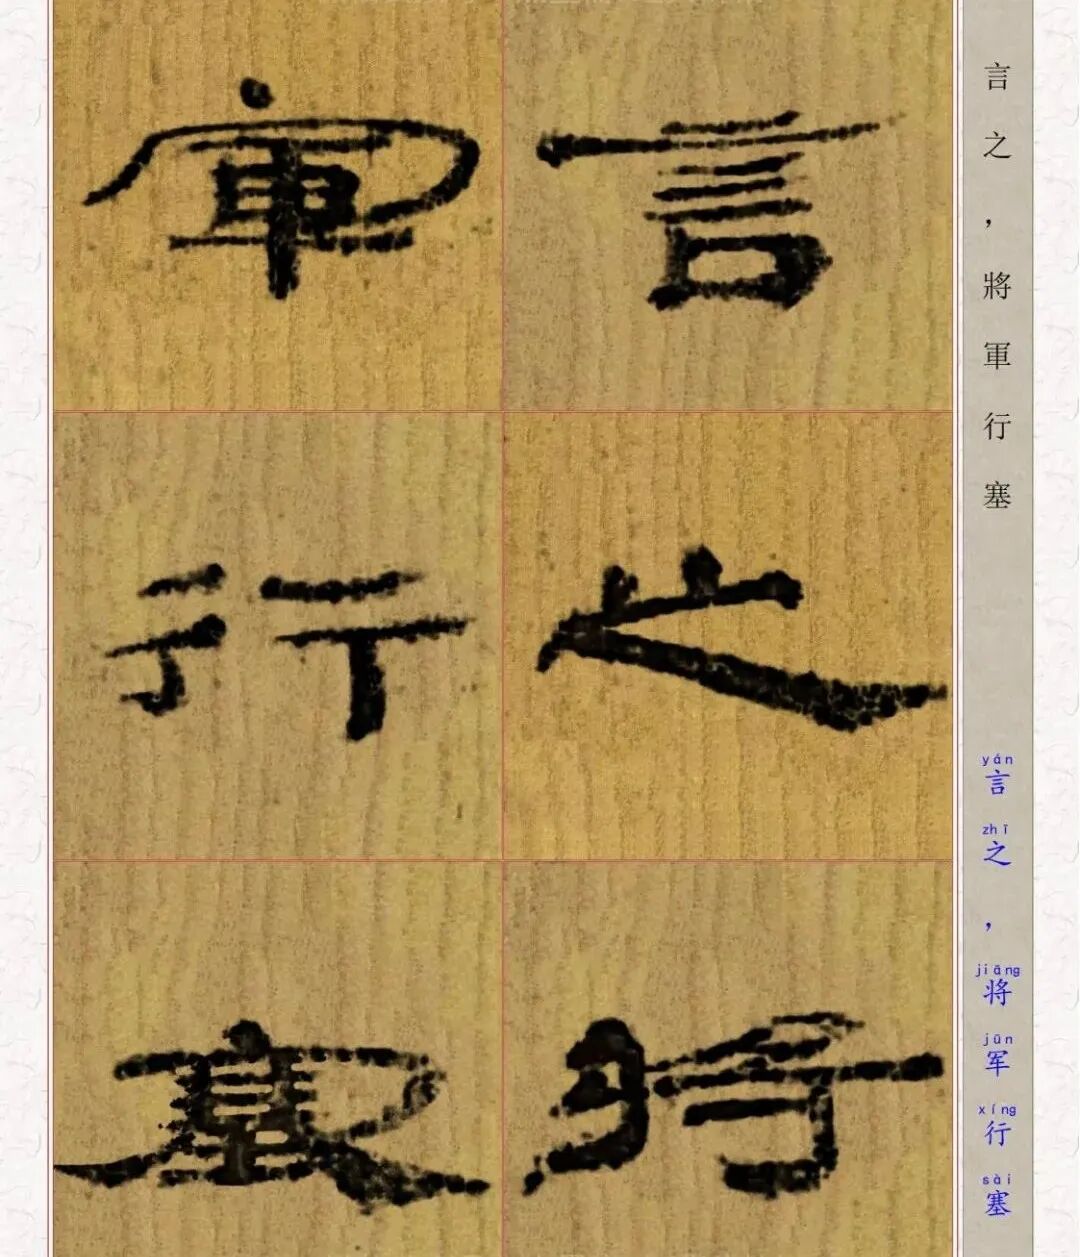 言之,將軍行塞
yán zhī , jiāng jūn xíng sài
言之,将军行塞
言之將
軍行塞